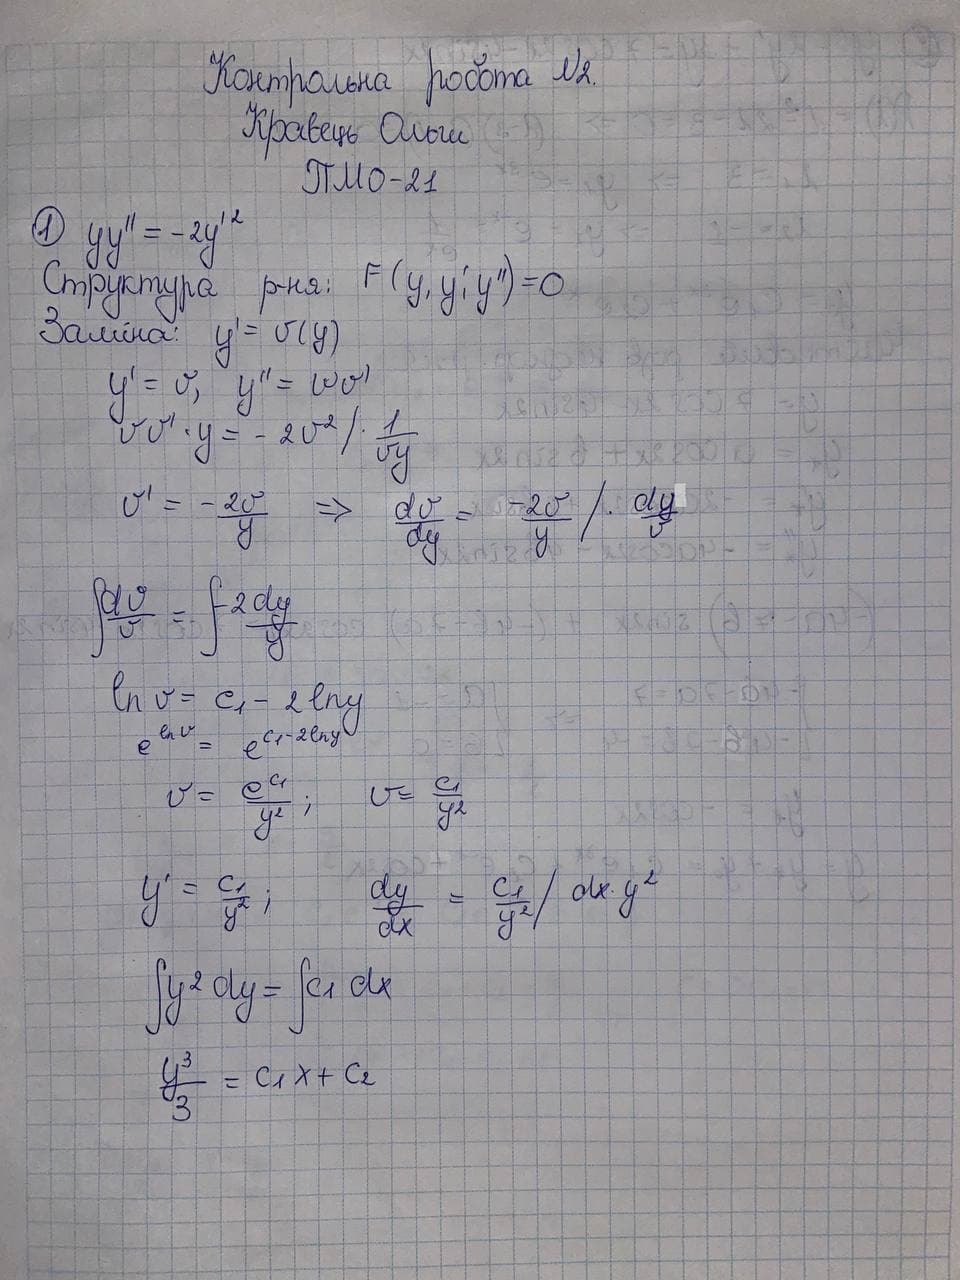 Контрольна робота №2.
Кравець Ольги
ПМО-21
① yy'' = -2y'²
Структура р-ня: F(y, y', y'')=0
Заміна: y' = v(y)
y' = v, y'' = vv'
vv'·y = -2v² /· 1/vy
v' = -2v/y => dv/dy = -2v/y /· dy/v
∫dv/v = ∫-2dy/y
ln v = c₁ - 2lny
e^(ln v) = e^(c₁-2lny)
v = e^c₁/y²; v = c₁/y²
y' = c₁/y²; dy/dx = c₁/y² / dx·y²
∫y² dy = ∫c₁ dx
y³/3 = c₁x + c₂